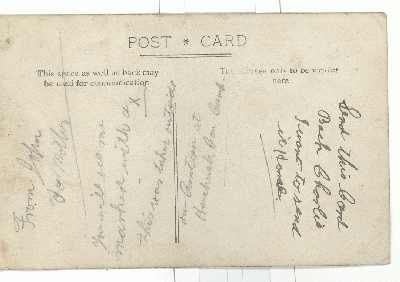 POST * CARD
This space as well as back may
be used for communication
The address only to be written
here
From John
You will see me
marked with a
X
this was taken outside
our Canteen at
Camp
Send this Card
Back Charlie
I want to send
it home